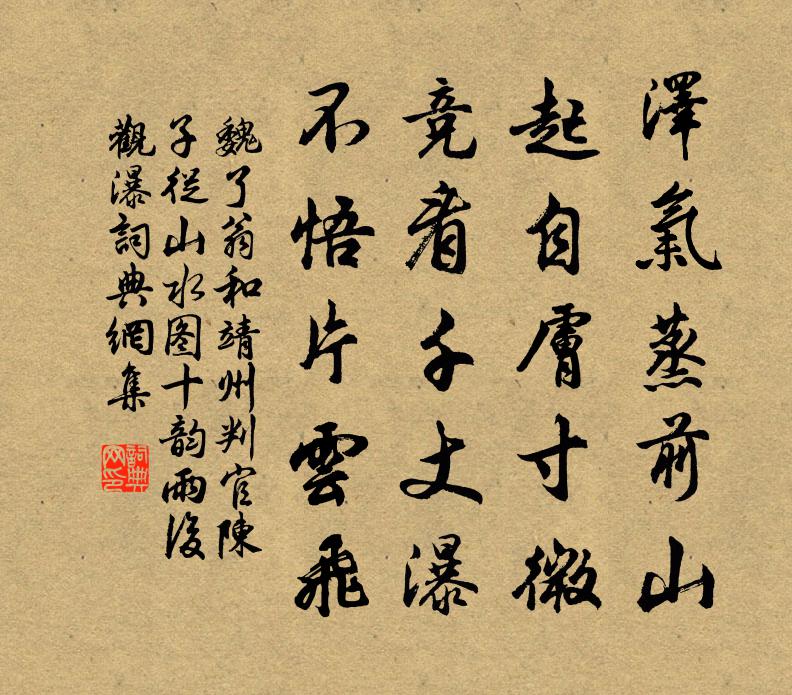 澤氣蒸前山
起自膚寸微
竞看千丈瀑
不悟片雲飛
魏了翁和靖州判官陳
子從山水图十韵雨後
觀瀑詞典網集
詞典网印